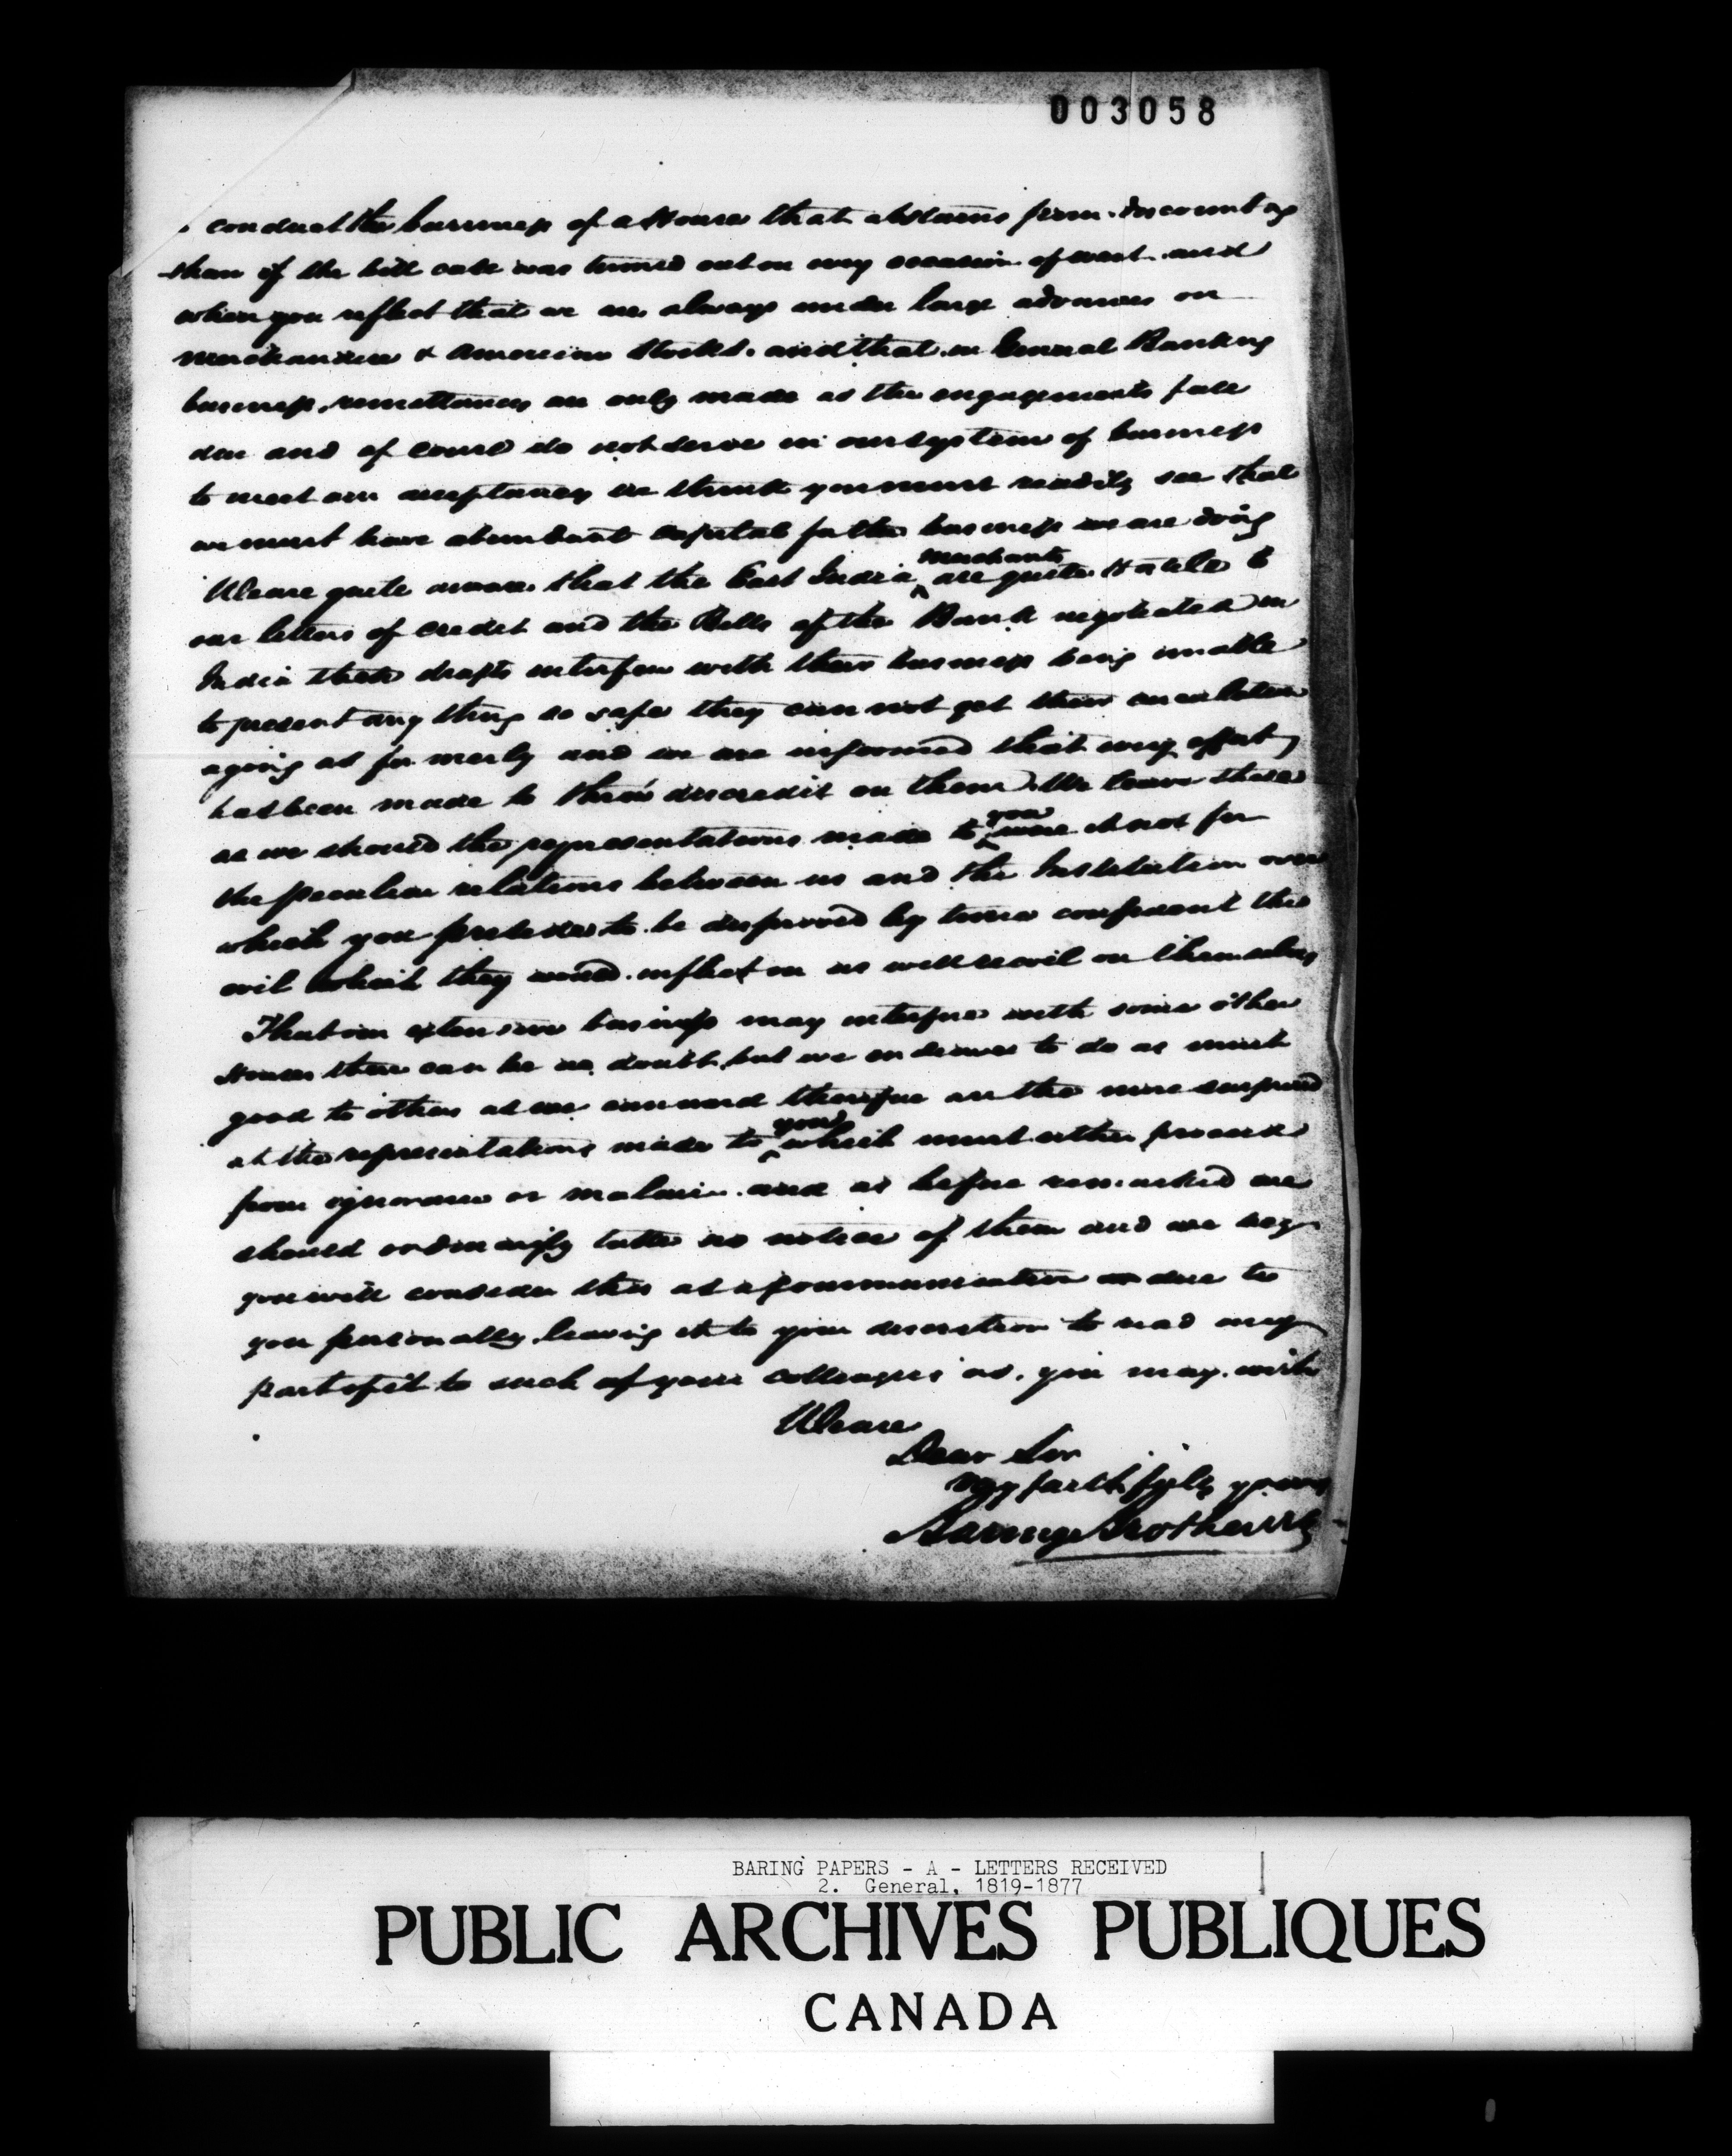 003058
conduct the business of a House that abstains from discounting
than if the bill case was turned out on every occasion of want and
when you reflect that we are always under large advances on
merchandise & American Stocks. and that in General Banking
business, remittances are only made as the engagements fall
due and of course do not serve in our system of business
to meet our acceptances we think you must readily see that
we must have abundant capital for the business we are doing
We are quite aware that the East India merchants are quite Hostile to
our letters of credit and the Bills of the Bank negotiated in
India these drafts interfere with their business being unable
to present any thing so safe they can not get their circulation
agoing as formerly and we are informed that every effort
has been made to throw discredit on them. We leave these
as we should the representations made to you were it not for
the peculiar relations between us and the Institution over
which you preside to be disproved by time confident the
evil which they would inflict on us will recoil on themselves
That our extensive business may interfere with some other
Houses there can be no doubt, but we endeavour to do as much
good to others as we can and therefore are the more surprised
at the representations made to you which must either proceed
from ignorance or malice and as before remarked we
should ordinarily take no notice of them and we beg
you will consider this as a communication due to
you personally leaving it to your discretion to read any
part of it to such of your colleagues as you may wish
We are
Dear Sir
Very faithfully yours
Baring Brothers & Co
BARING PAPERS - A - LETTERS RECEIVED
2. General, 1819-1877
PUBLIC ARCHIVES PUBLIQUES
CANADA